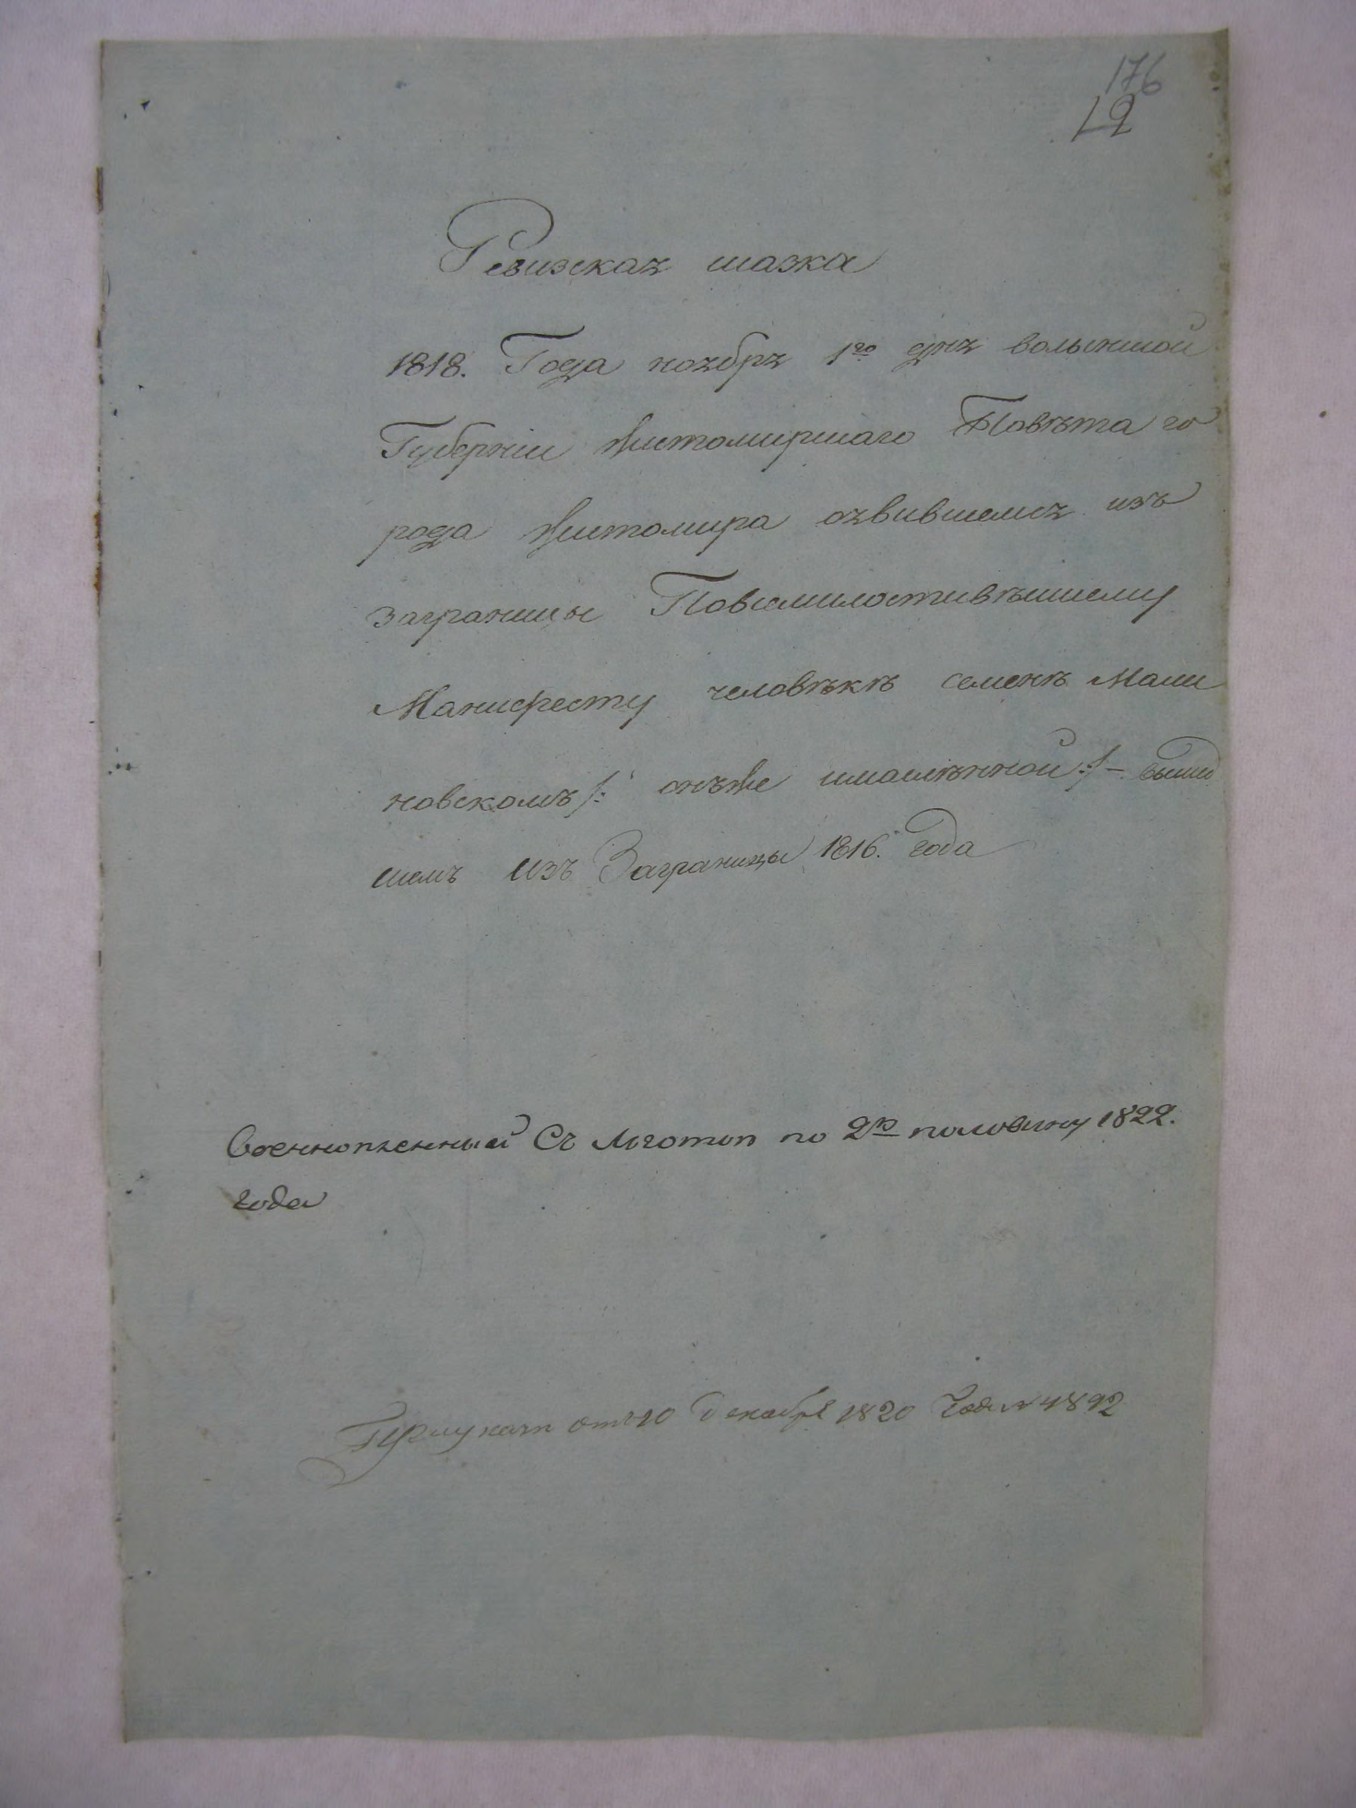 176
12
Ревизская сказка
1818. Года ноября 1го дня волынской
Губернiи житомирскаго Повѣта го
рода житомира оявившемся изъ
заграницы Повсемилостивѣйшему
Манифесту человѣкѣ семенѣ Мали
новскомъ /: онъже :/ – вышед
шемъ изъ Заграницы 1816. года
Военнопленный Съ Льготою по 2ю половину 1822.
года
от 10 декабря 1820 Года № 4892